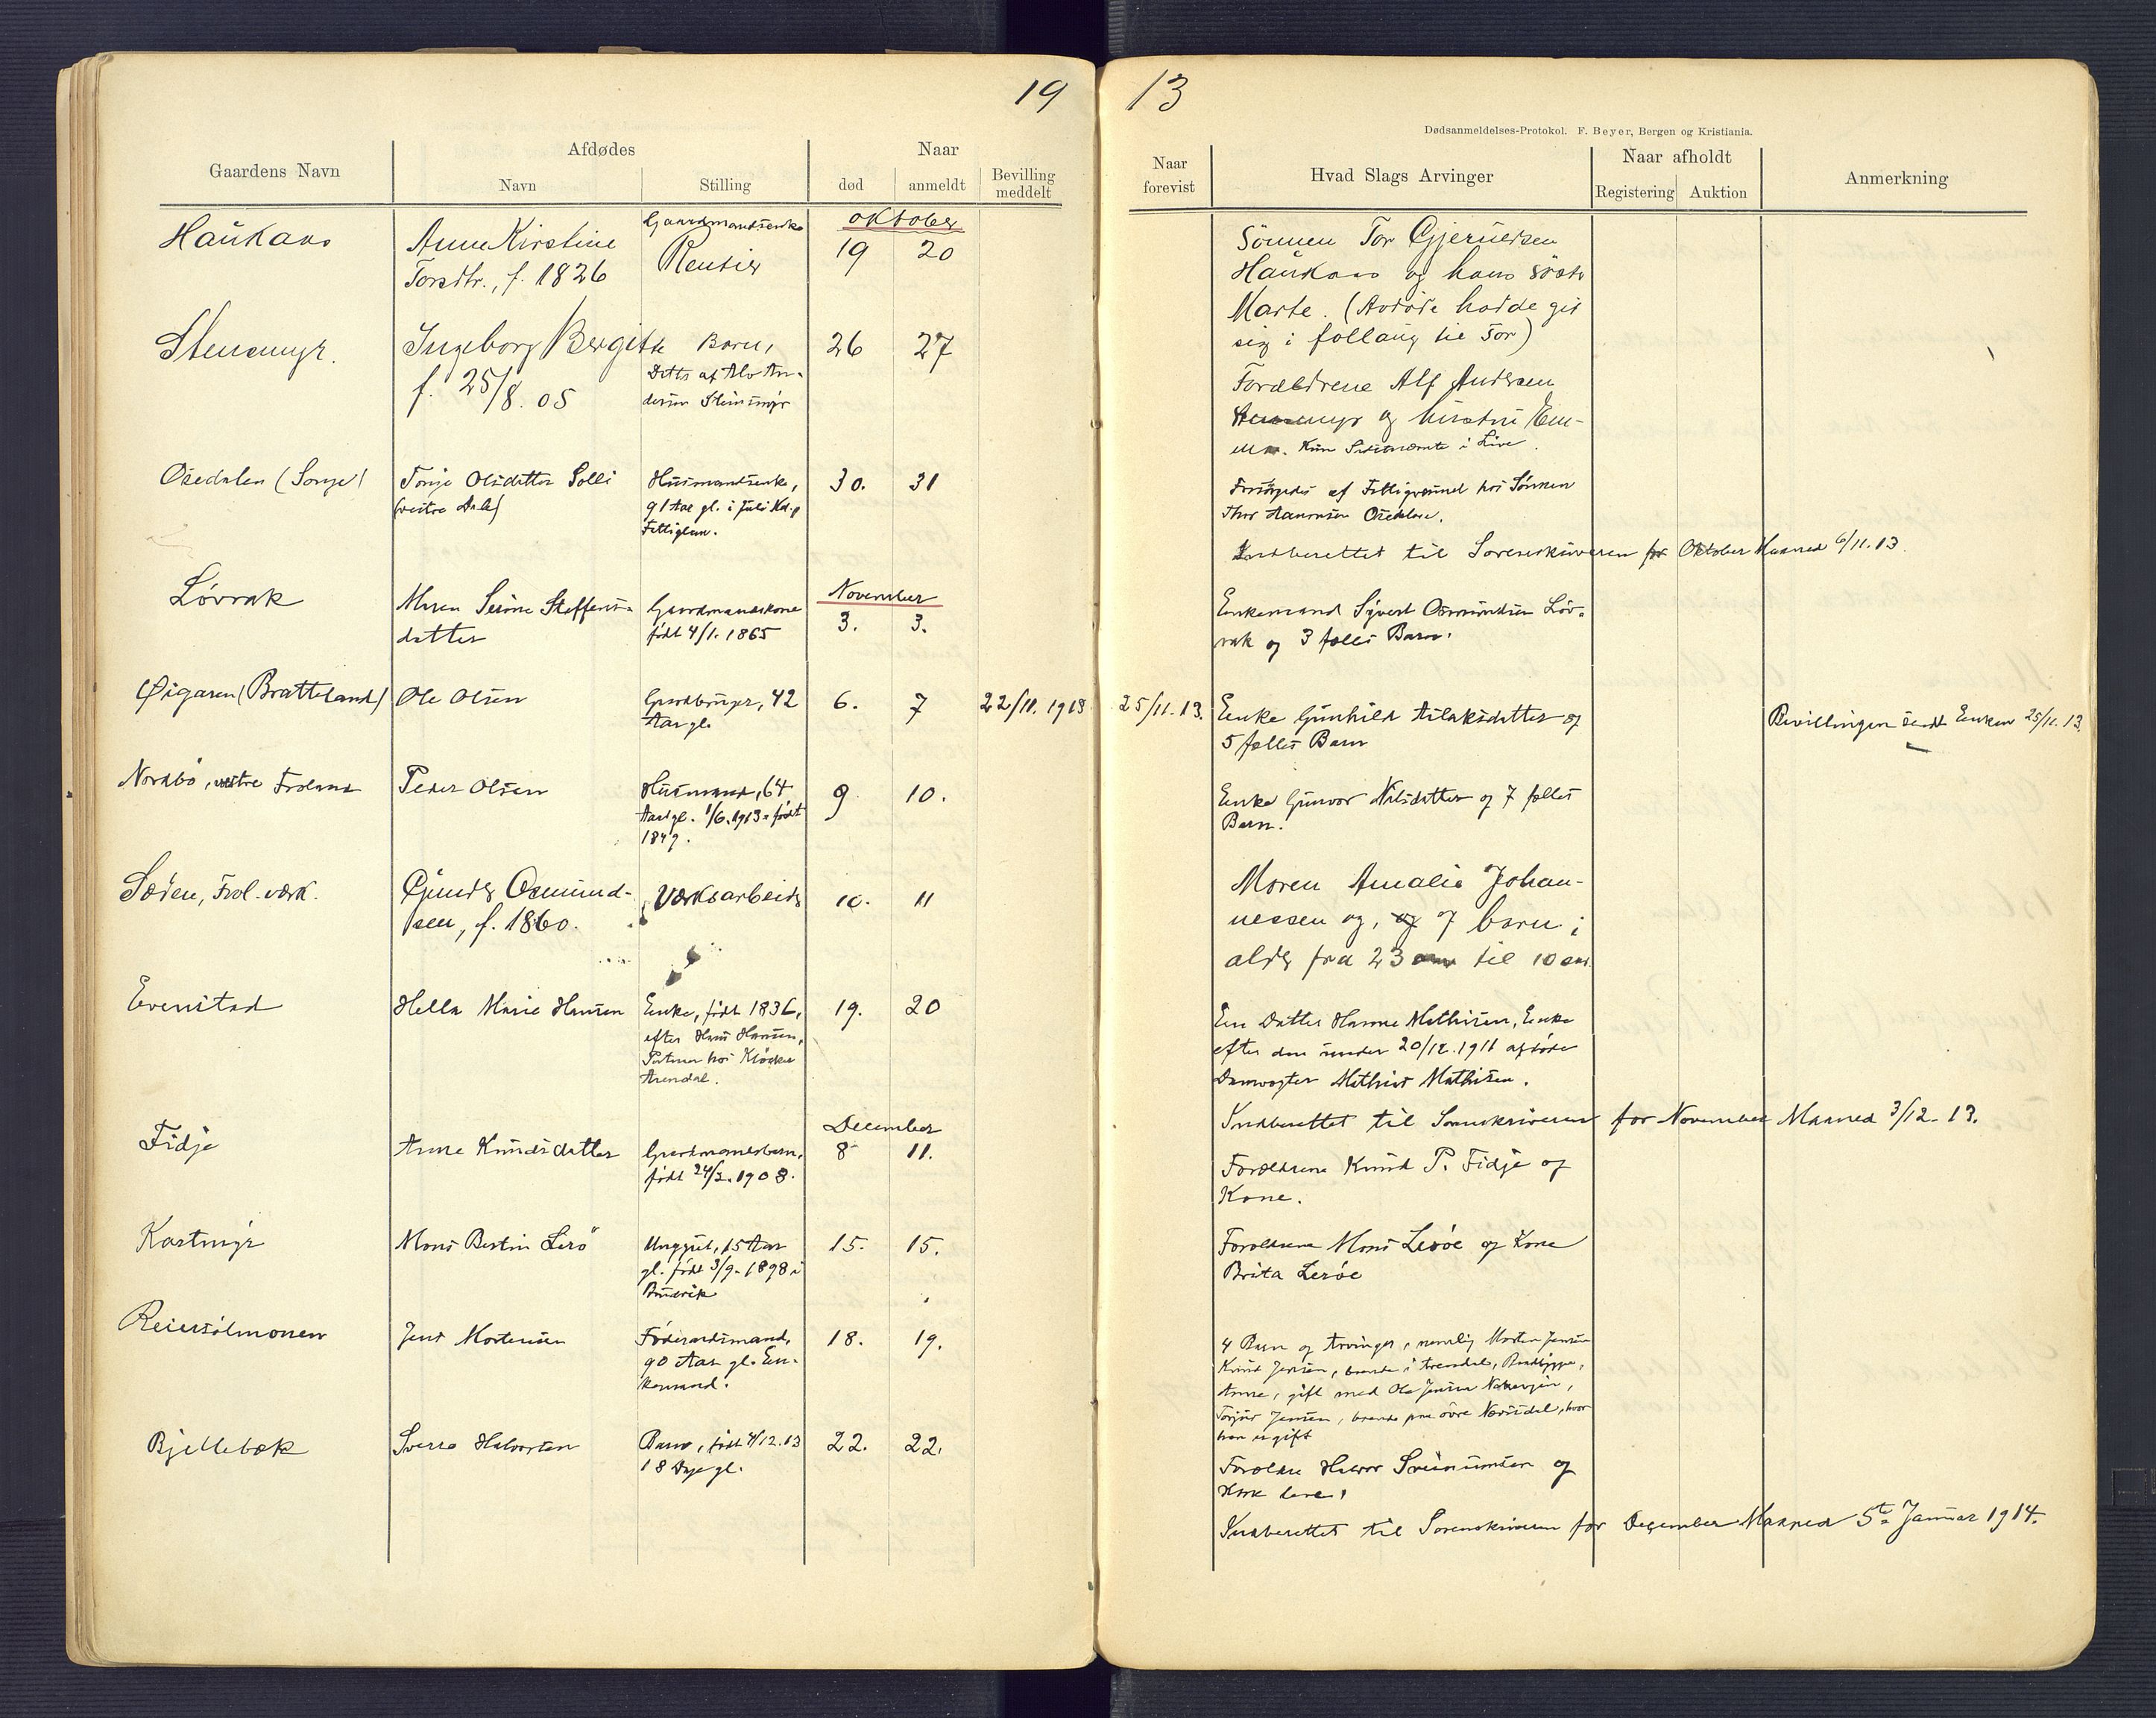 19 13
Dødsanmeldelses-Protokol. F. Beyer, Bergen og Kristiania.
Gaardens Navn
Afdødes
Navn
Stilling
Naar
død
anmeldt
Bevilling
meddelt
Naar
forevist
Hvad Slags Arvinger
Naar afholdt
Registering
Auktion
Anmerkning
Oktober
Haukaas
Anne Kirstine
Torsdtr., f. 1826
Gaardmandsenke
Rentier
19
20
Sønnen Tor Gjerulsen
Haukaas og hans søster
Marte. (Avdøde hadde git
sig i follaug til Tor)
Stensmyr.
Ingeborg Bergitte
f. 25/8. 05
Barn,
Datter af Alv An-
dersen Stensmyr
26
27
Forældrene Alf Andersen
Stensmyr og Kirstine Em-
Osedalen (Songe)
Tonje Olsdatter Solli
(vestre Dale)
Husmandsenke,
91 Aar gl. i Juli
Fattiglem.
30.
31
Forsørgedes af Fattigvæsenet hos Sønnen
Thor Aanonsen Osedalen.
Indberettet til Sorenskriveren for Oktober Maaned 6/11. 13.
November
Løvrak
Maren Serine Steffens-
datter
Gaardmandskone
født 4/1. 1865
3.
3.
Enkemand Sÿvert Osmundsen Løv-
rak og 3 fælles Barn.
Øigaren (Bratteland)
Ole Olsen
Gaardbruger, 42
Aar gl.
6.
7
22/11. 1913
25/11. 13.
Enke Gunhild Aslaksdatter og
5 fælles Barn
Bevillingen sendt Enken 25/11. 13.
Nordbø, vestre Froland
Peder Olsen
Husmand, 64
Aar gl. 1/6. 1913 = født
1849.
9
10.
Enke Gunvor Nilsdatter og 7 fælles
Barn.
Sæden, Frol. værk.
Gunder Osmund-
sen, f. 1860.
Værksarbeider
10.
11
Moren Amalie Johan-
nessen og, og 7 barn i
alder fra 23 aar til 10 aar.
Evenstad
Hella Marie Hansen
Enke, født 1836,
efter Hans Hansen,
hos Kløcker
Arendal.
19.
20
En Datter Hanne Mathisen, Enke
efter den under 20/12. 1911 afdøde
Damvogter Mathias Mathisen.
Indberettet til Sorenskriveren for November Maaned 3/12. 13.
December
Fidje
Anne Knudsdatter
Gaardmandsbarn,
født 24/2. 1908.
8
11.
Forældrene Knud P. Fidje og
Kone.
Kastmyr
Mons Bertin Lerø
Unggut, 15 Aar
gl. født 3/9. 1898 i
Bruvik
15.
15.
Forældrene Mons Lerøe og Kone
Brita Lerøe
Reiersølmonen
Jens Mortensen
Føderaadsmand,
90 Aar gl. En-
kemand.
18.
19.
4 Barn og Arvinger, nemlig Morten Jensen
Knud Jensen, boende i Arendal,
Anne, gift med Ole Jensen
Torjus Jensen, boende paa øvre Næsisdal, hvor
han er gift
Bjellebæk
Sverre Halvorsen
Barn, født 4/12. 13
18 Dage gl.
22.
22.
Forældre Halvor Sveinumsen og
Kone
Indberettet til Sorenskriveren for December Maaned 5te Januar 1914.